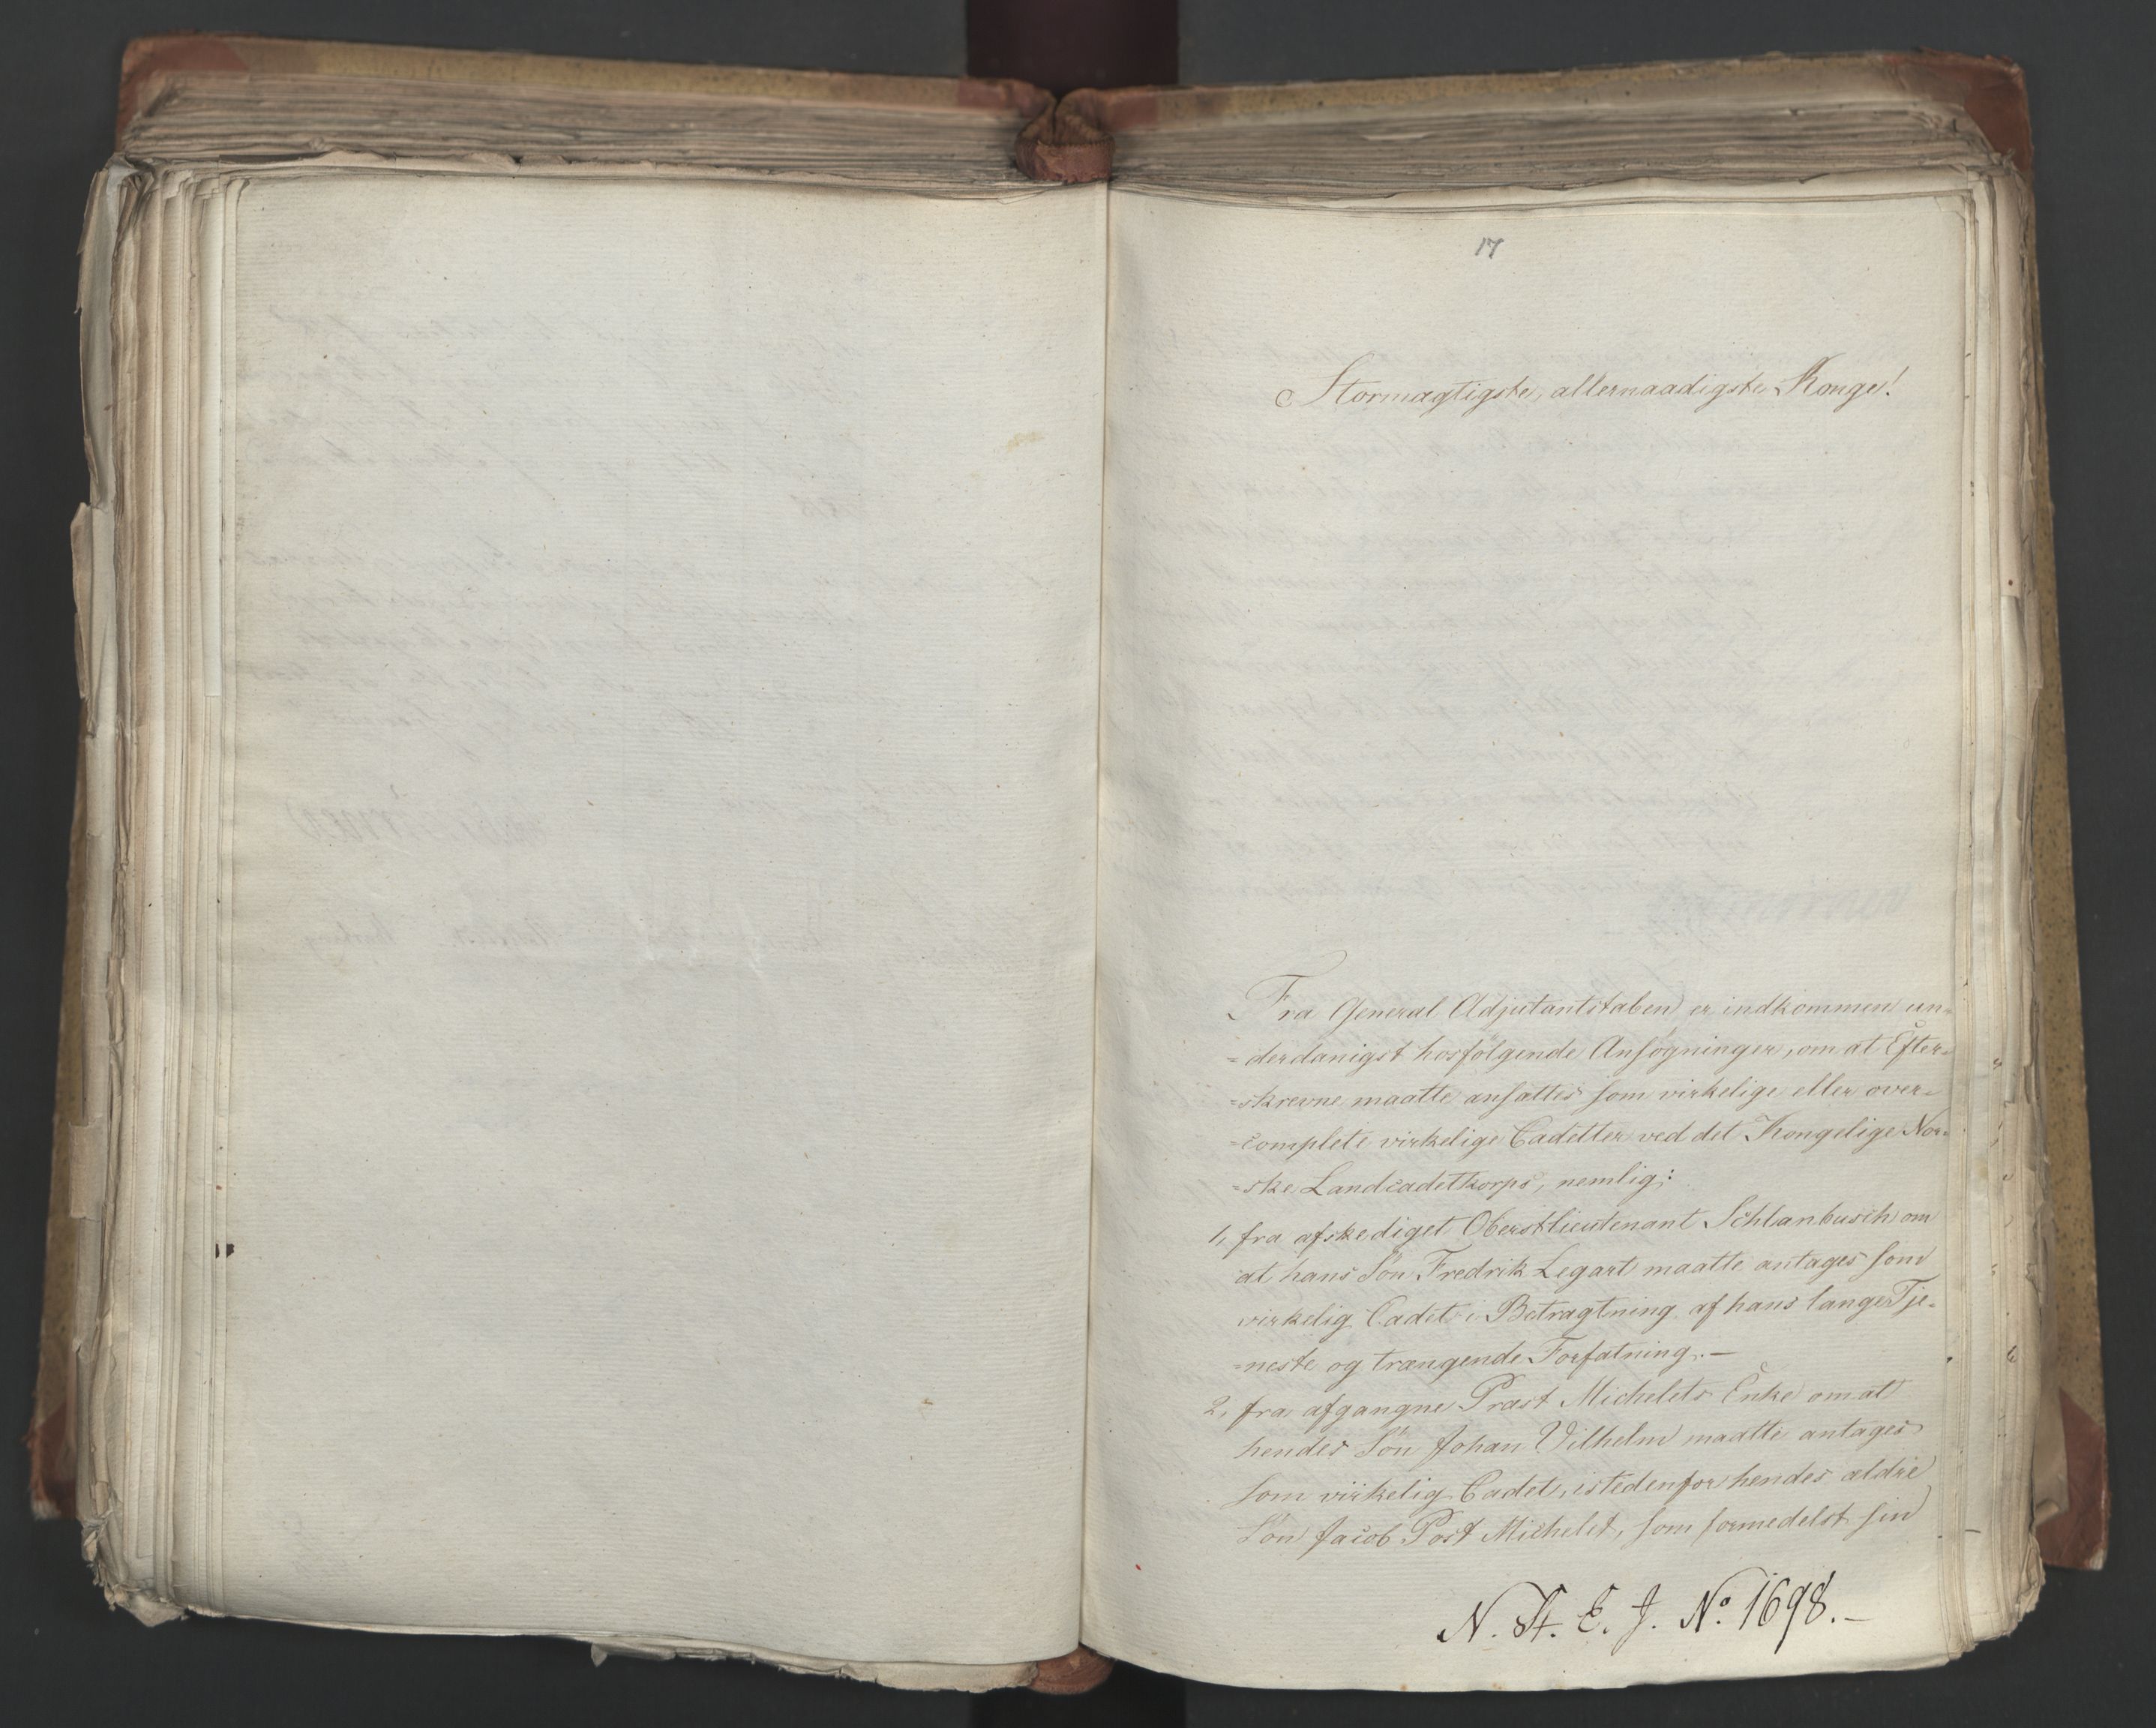 17
Stormægtigste, allernaadigste Konge!
Fra General Adjutantstaben er indkommen un=
=derdanigst hosfølgende Ansøgninger, om at Efter=
=skrevne maatte ansættes som virkelige eller over=
=complete virkelige Cadetter ved det Kongelige Nor=
=ske Landcadetkorps, nemlig:
1, fra afskediget Oberstlieutenant Schlanbusch om
at hans Søn Fredrik Legart maatte antages som
virkelig Cadet i Betragtning af hans lange Tje=
=neste og trængende Forfatning. —
2, fra afgangne Præst Michelets Enke om at
hendes Søn Johan Vilhelm maatte antages
som virkelig Cadet, istedenfor hendes ældre
Søn Jacob Post Michelet, som formedelst sin
N. St. E. J. No. 1698. —